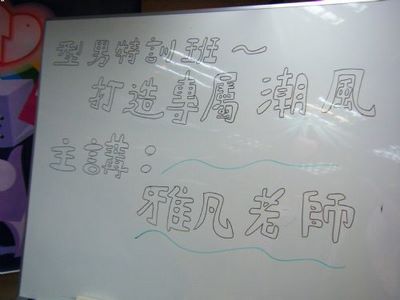 型男特訓班～
打造專屬潮風
主講：
雅凡老師